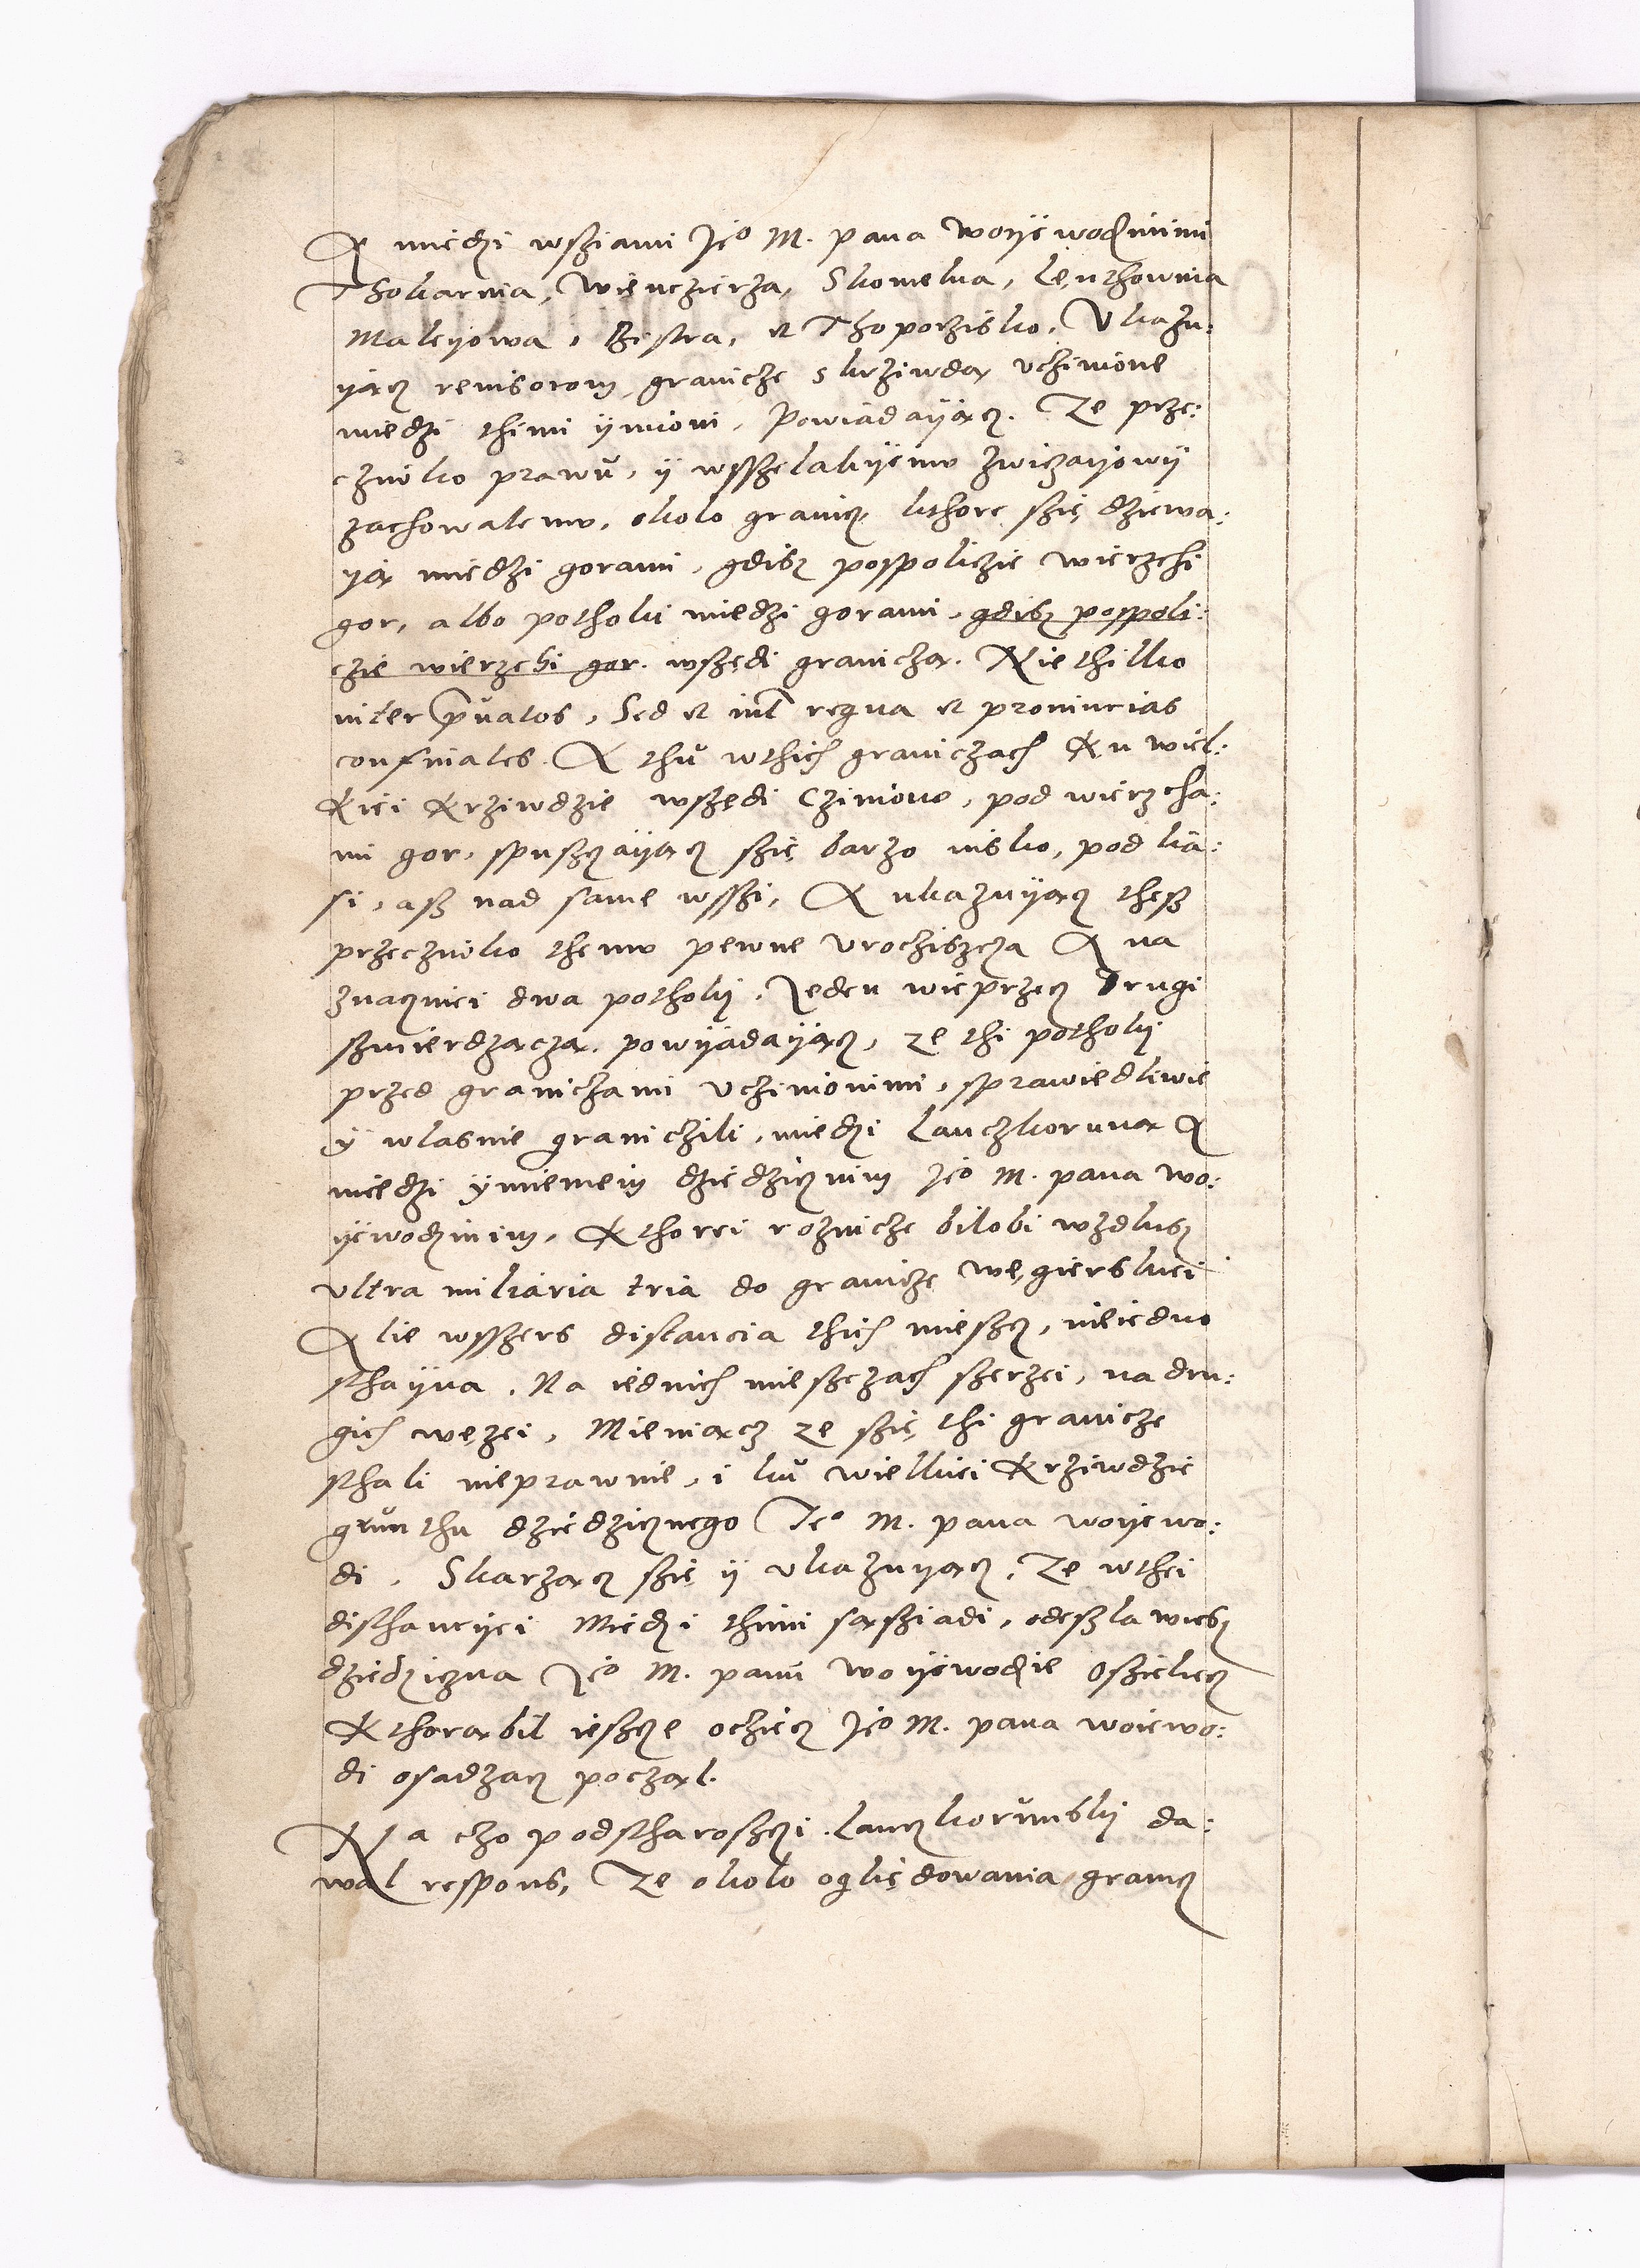 A miedzi wsziami Jeo M. pana woyewodzinimi
Thokarnia, Wienczierza, Skomelna, Lenthownia
Maleyowa, Bistra, et Thoporzisko, Ukazu:
yącz revisorom, granicze s krziwdą uczinione
miedzi thimi ymioni, Powiadayącz. Ze prze:
cziwko prawu, y wsszelakyemu zwiczayowy
zachowalemu, okolo granicz, kthore szię dziewa:
yą miedzi gorami, gdisz pospoliczie wierzchi
gor, albo pothoki miedzi gorami, gdisz pospoli:
czie wierzchi gor. wszędi graniczą. Nie thilko
inter privatos, Sed et int regna et provincias
confiniales. A thu wthich graniczach Ku wiel:
kiei Krziwdzie wszędi Cziniono, pod wierzcha:
mi gor, spuszczayącz szię barzo nisko, pod la:
si, asz nad same wsszi, A ukazuyącz thesz
przecziwko themu pewne uroczisczа A na
znaczniei dwa pothoky, Jeden wieprzecz Drugi
szmierdzączą. powyadayącz, ze thi pothoky
przed graniczami uczinionimi, sprawiedliwie
y wlasnie graniczili, miedzi Lanczkoruną A
miedzi ymieniem dziedzicznim Jeo M. pana wo:
yewodzinim, Kthorei roznicze bilobi wzdlusz
ultra miliaria tria do granicze węgierskiei
Alie wsszers distancia thich miescz, nieiedno
sthayna, Na iednich mieszczach szerzei, na dru:
gich węzei, Mieniącz ze szię thi granicze
sthali nieprawnie, i ku wielkiei Krziwdzie
grunthu dziedzicznego Jeo M. pana woyewo:
di, Skarzącz szię y ukazuyącz, Ze wthei
disthancyei Miedzi thimi sąsziadi, odeszla wiesz
dziedziczna Jeo M. panu woyewodzie Oszielecz
Kthorą bil ieszcze ocziecz Jeo M. pana woiewo:
di osadzacz począl.
Na czo podstharosczi Lanczkorunsky da:
wal respons, Ze okolo ogliędowania granicz